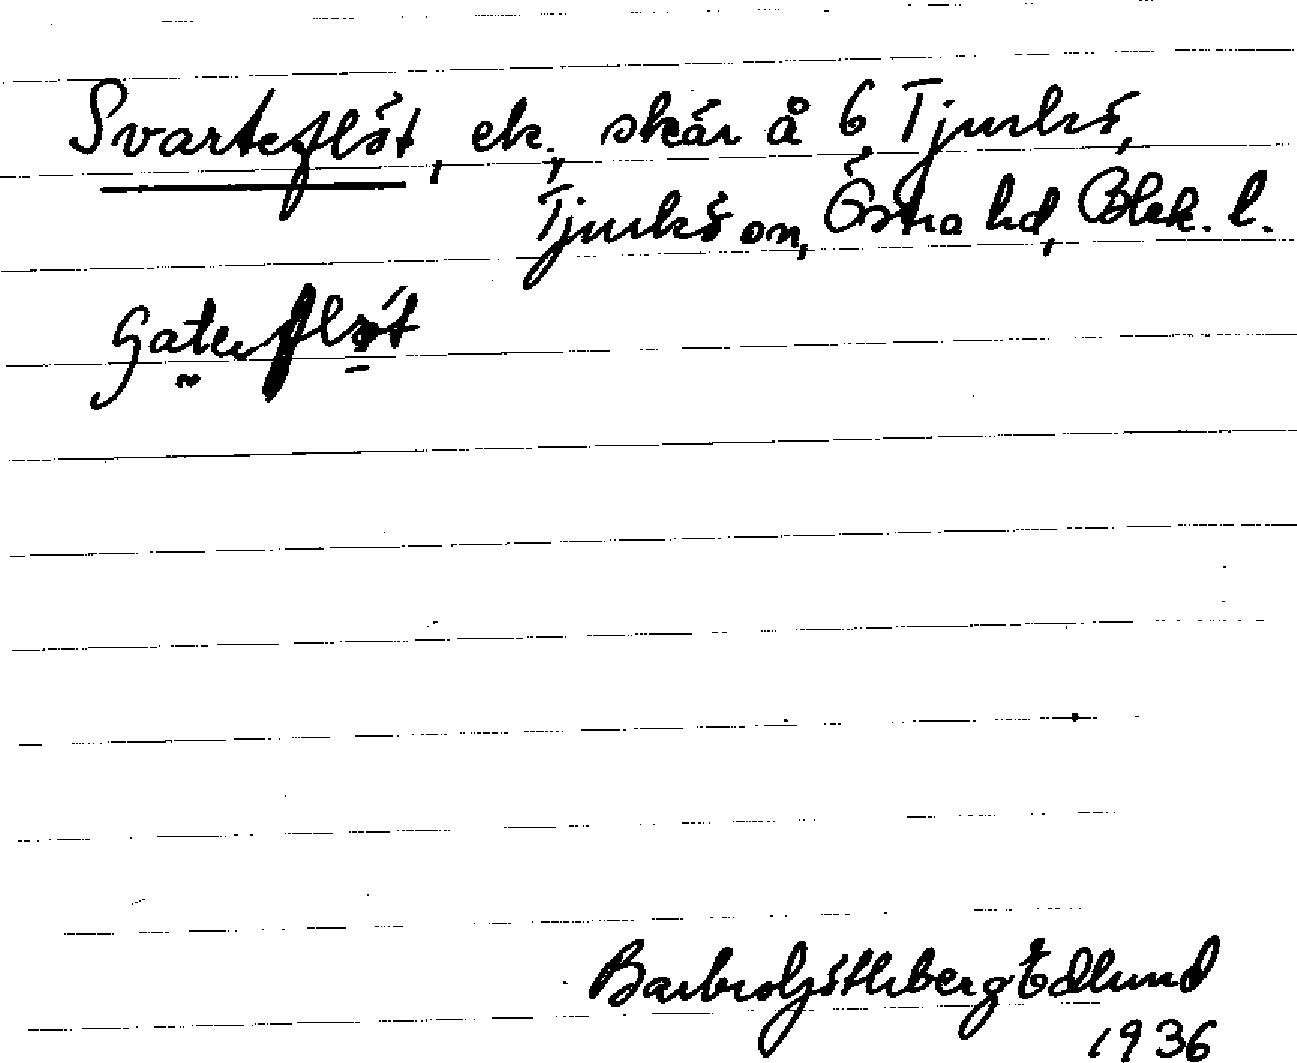 Svarteflöt, ek., skär å 6 Tjurkö,
Tjurkö sn, Östra hd, Blek. l.
Barbro Göthberg Edlund
1936